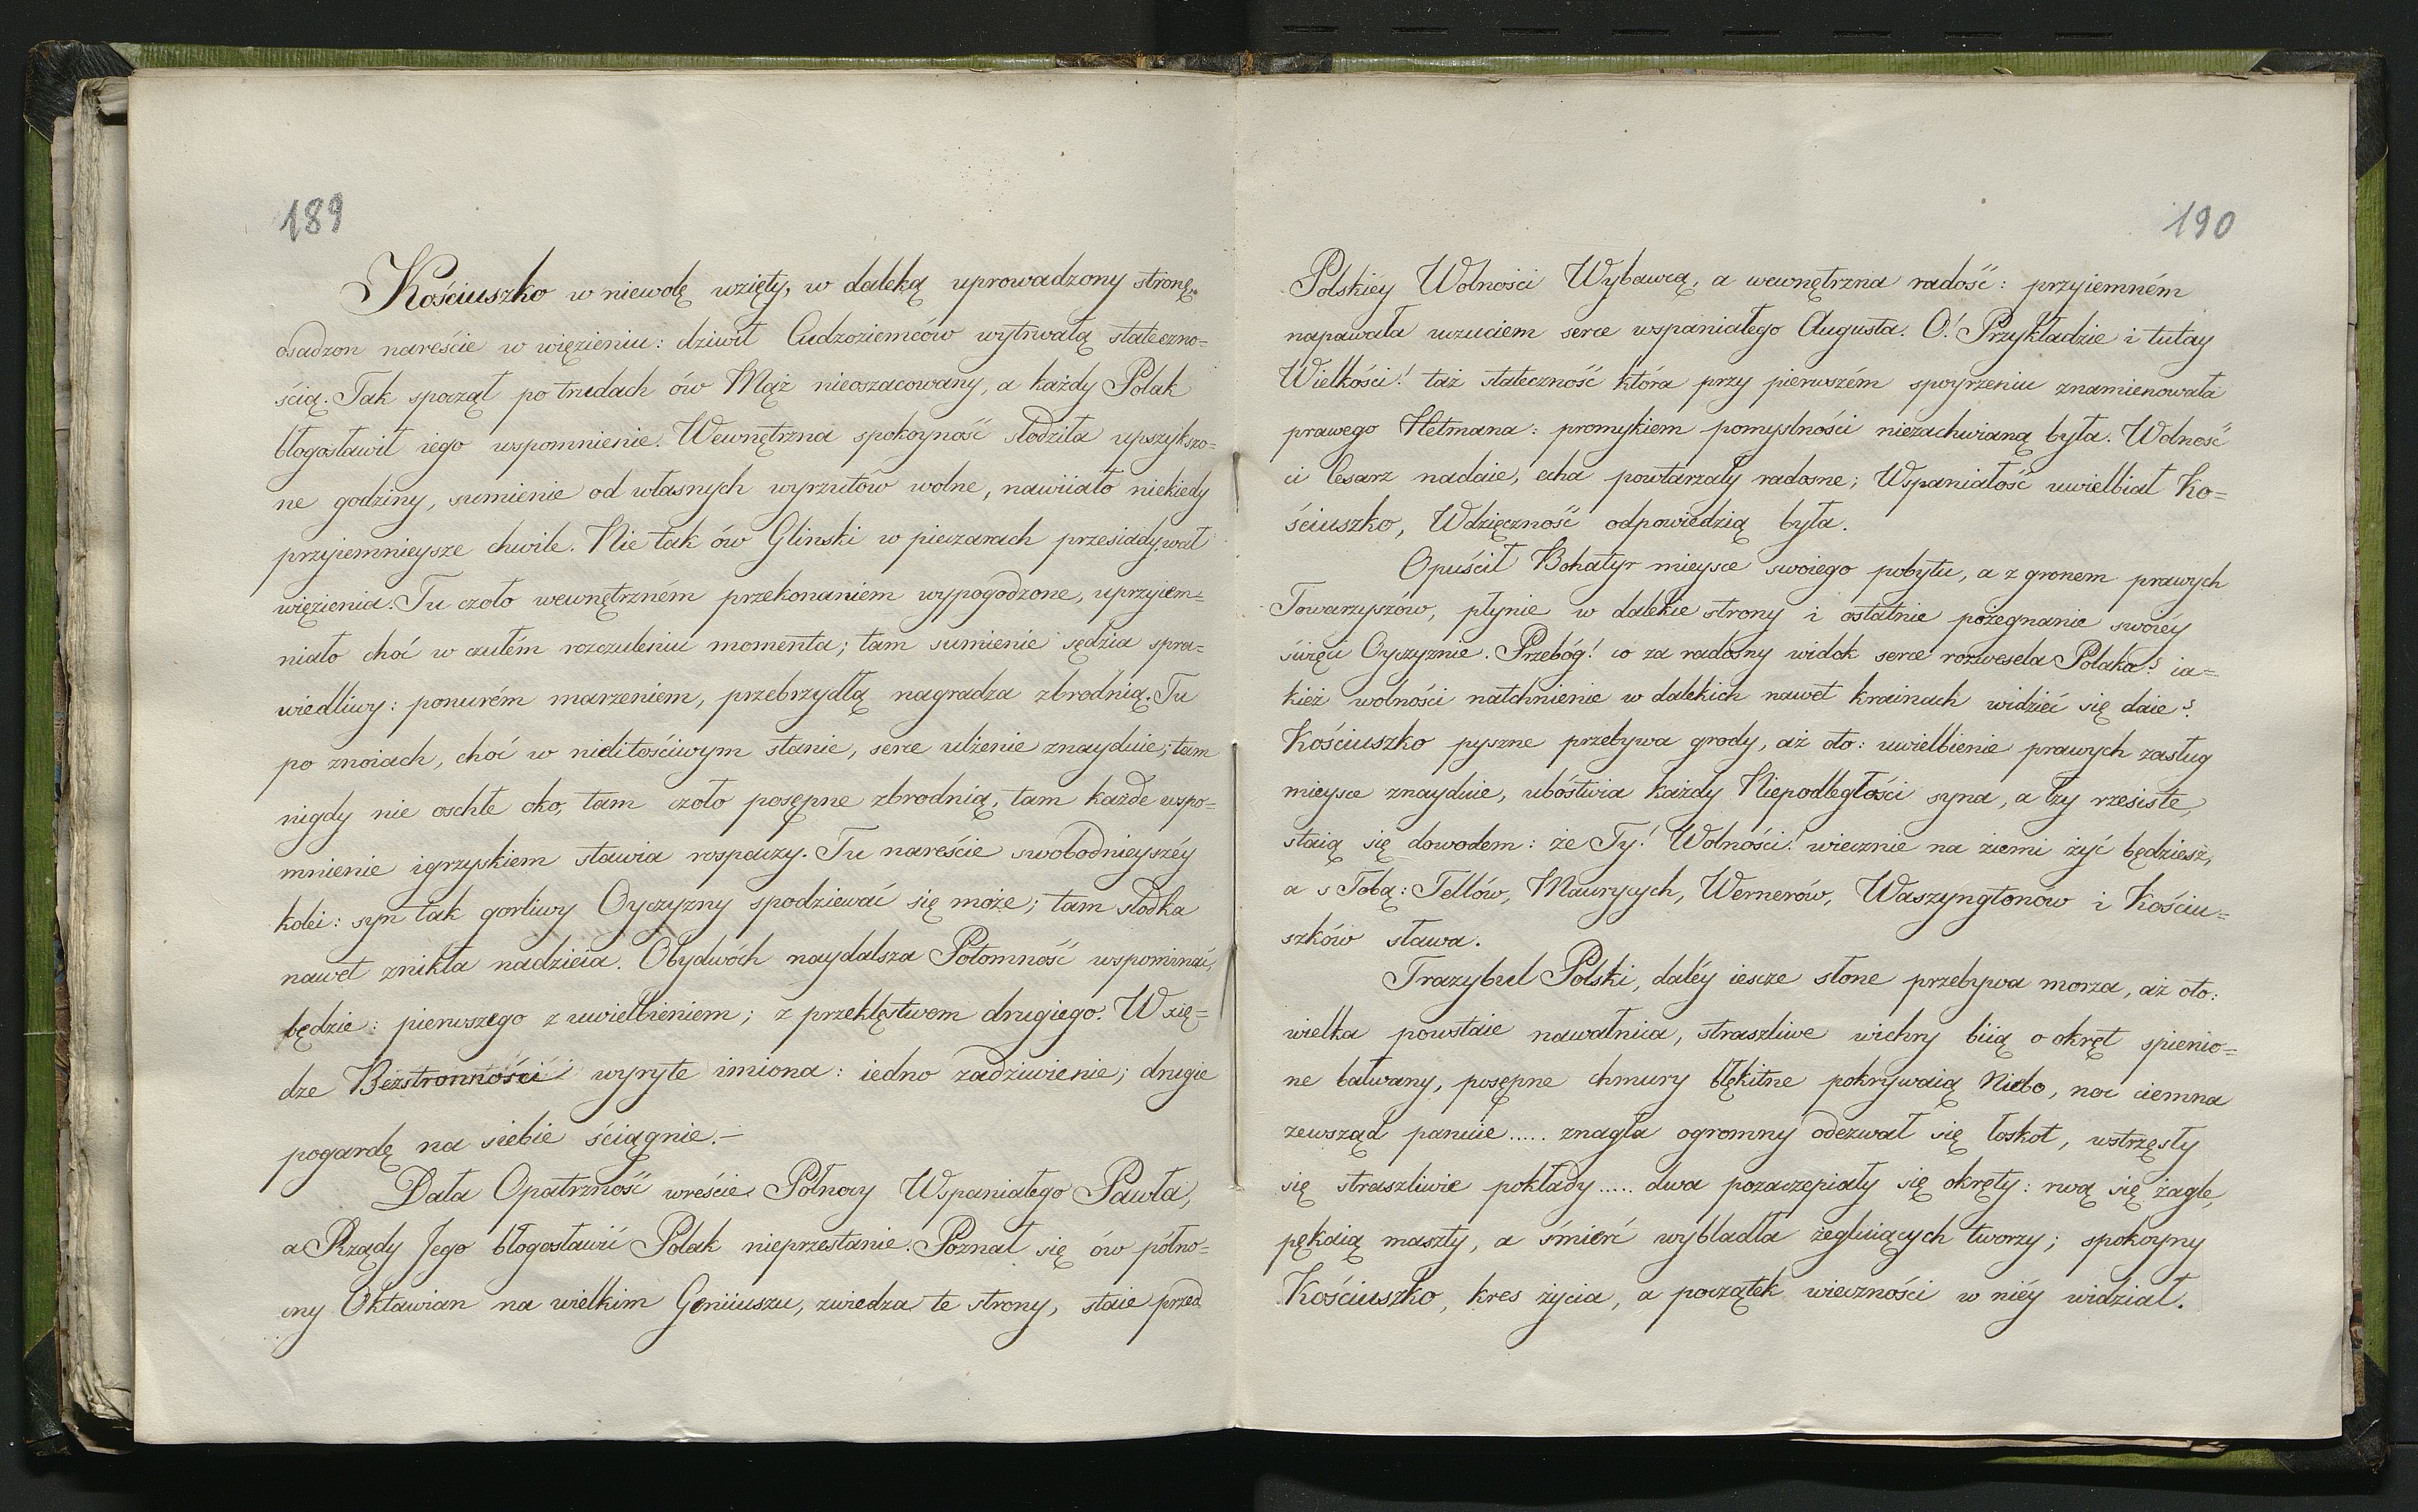 189
Kościuszko w niewolę wzięty, w daleką uprowadzony stronę,
osadzon nareście w więzieniu: dziwił Cudzoziemców wytrwałą stateczno=
ścią. Tak spoczął po trudach ów Mąż nieoszacowany, a każdy Polak
błogosławił iego wspomnienie. Wewnętrzna spokoyność słodziła uprzykszo=
ne godziny, sumienie od własnych wyrzutów wolne, nawiiało niekiedy
przyiemnieysze chwile. Nie tak ów Glinski w pieczarach przesiadywał
więzienia. Tu czoło wewnętrzném przekonaniem wypogodzone, uprzyiem=
niało choć w czułém rozczuleniu momenta; tam sumienie sędzia spra=
wiedliwy: ponurém marzeniem, przebrzydłą nagradza zbrodnią. Tu
po znoiach, choć w nielitościwym stanie, serce ulżenie znayduie; tam
nigdy nie oschłe oko, tam czoło posępne zbrodnią, tam każde wspo=
mnienie igrzyskiem stawia rospaczy. Tu nareście swobodnieyszéy
kolei: syn tak gorliwy Oyczyzny spodziewać się może; tam słodka
nawet znikła nadzieia. Obydwóch naydalsza Potomność wspominać,
będzie: pierwszego z uwielbieniem; z przeklęstwem drugiego. W xię=
dze Bezstronności wyryte imiona: iedno zadziwienie; drugie
pogardę na siebie ściągnie.—
Dała Opatrzność wreście Północy Wspaniałego Pawła,
a Rządy Jego błogosławić Polak nieprzestanie. Poznał się ów półno=
cny Oktawian na wielkim Geniiuszu, zwiedza te strony, staie przed
190
Polskiéy Wolności Wybawcą, a wewnętrzna radość: przyiemném
napawała uczuciem serce wspaniałego Augusta. O! Przykładzie i tutay
Wielkości! taż stateczność która przy pierwszém spoyrzeniu znamienowała
prawego Hetmana: promykiem pomyslności niezachwianą była. Wolność
ci Cesarz nadaie, echa powtarzały radosne; Wspaniałość uwielbiał Ko=
ściuszko, Wdzięczność odpowiedzią była.
Opuścił Bohatyr mieysce swoiego pobytu, a z gronem prawych
Towarzyszów, płynie w dalekie strony i ostatnie pożegnanie swoiéy
święci Oyczyznie. Przebóg! co za radosny widok serce rozwesela Polaka? ia=
kież wolności natchnienie w dalekich nawet krainach widzieć się daie?
Kościuszko pyszne przebywa grody, aż oto: uwielbienie prawych zasług
mieysce znayduie, ubóstwia każdy Niepodległości syna, a łzy rzesiste,
staią się dowodem: że Ty! Wolności! wiecznie na ziemi żyć będziesz,
a s Tobą: Tellów, Maurycych, Wernerów, Waszyngtonów i Kościu=
szków sława.
Trazybul Polski, daléy iescze słone przebywa morza, aż oto:
wielka powstaie nawałnica, straszliwe wichry biią o okręt spienio=
ne bałwany, posępne chmury błękitne pokrywaią Niebo, noc ciemna
zewsząd panuie ..... znagła ogromny odezwał się łoskot, wstrzęsły
się straszliwie pokłady ..... dwa pozaczepiały się okręty: rwą się żagle,
pękaią maszty, a śmierć wybladła żegluiących tworzy; spokoyny
Kościuszko, kres życia, a początek wieczności w niéy widział.